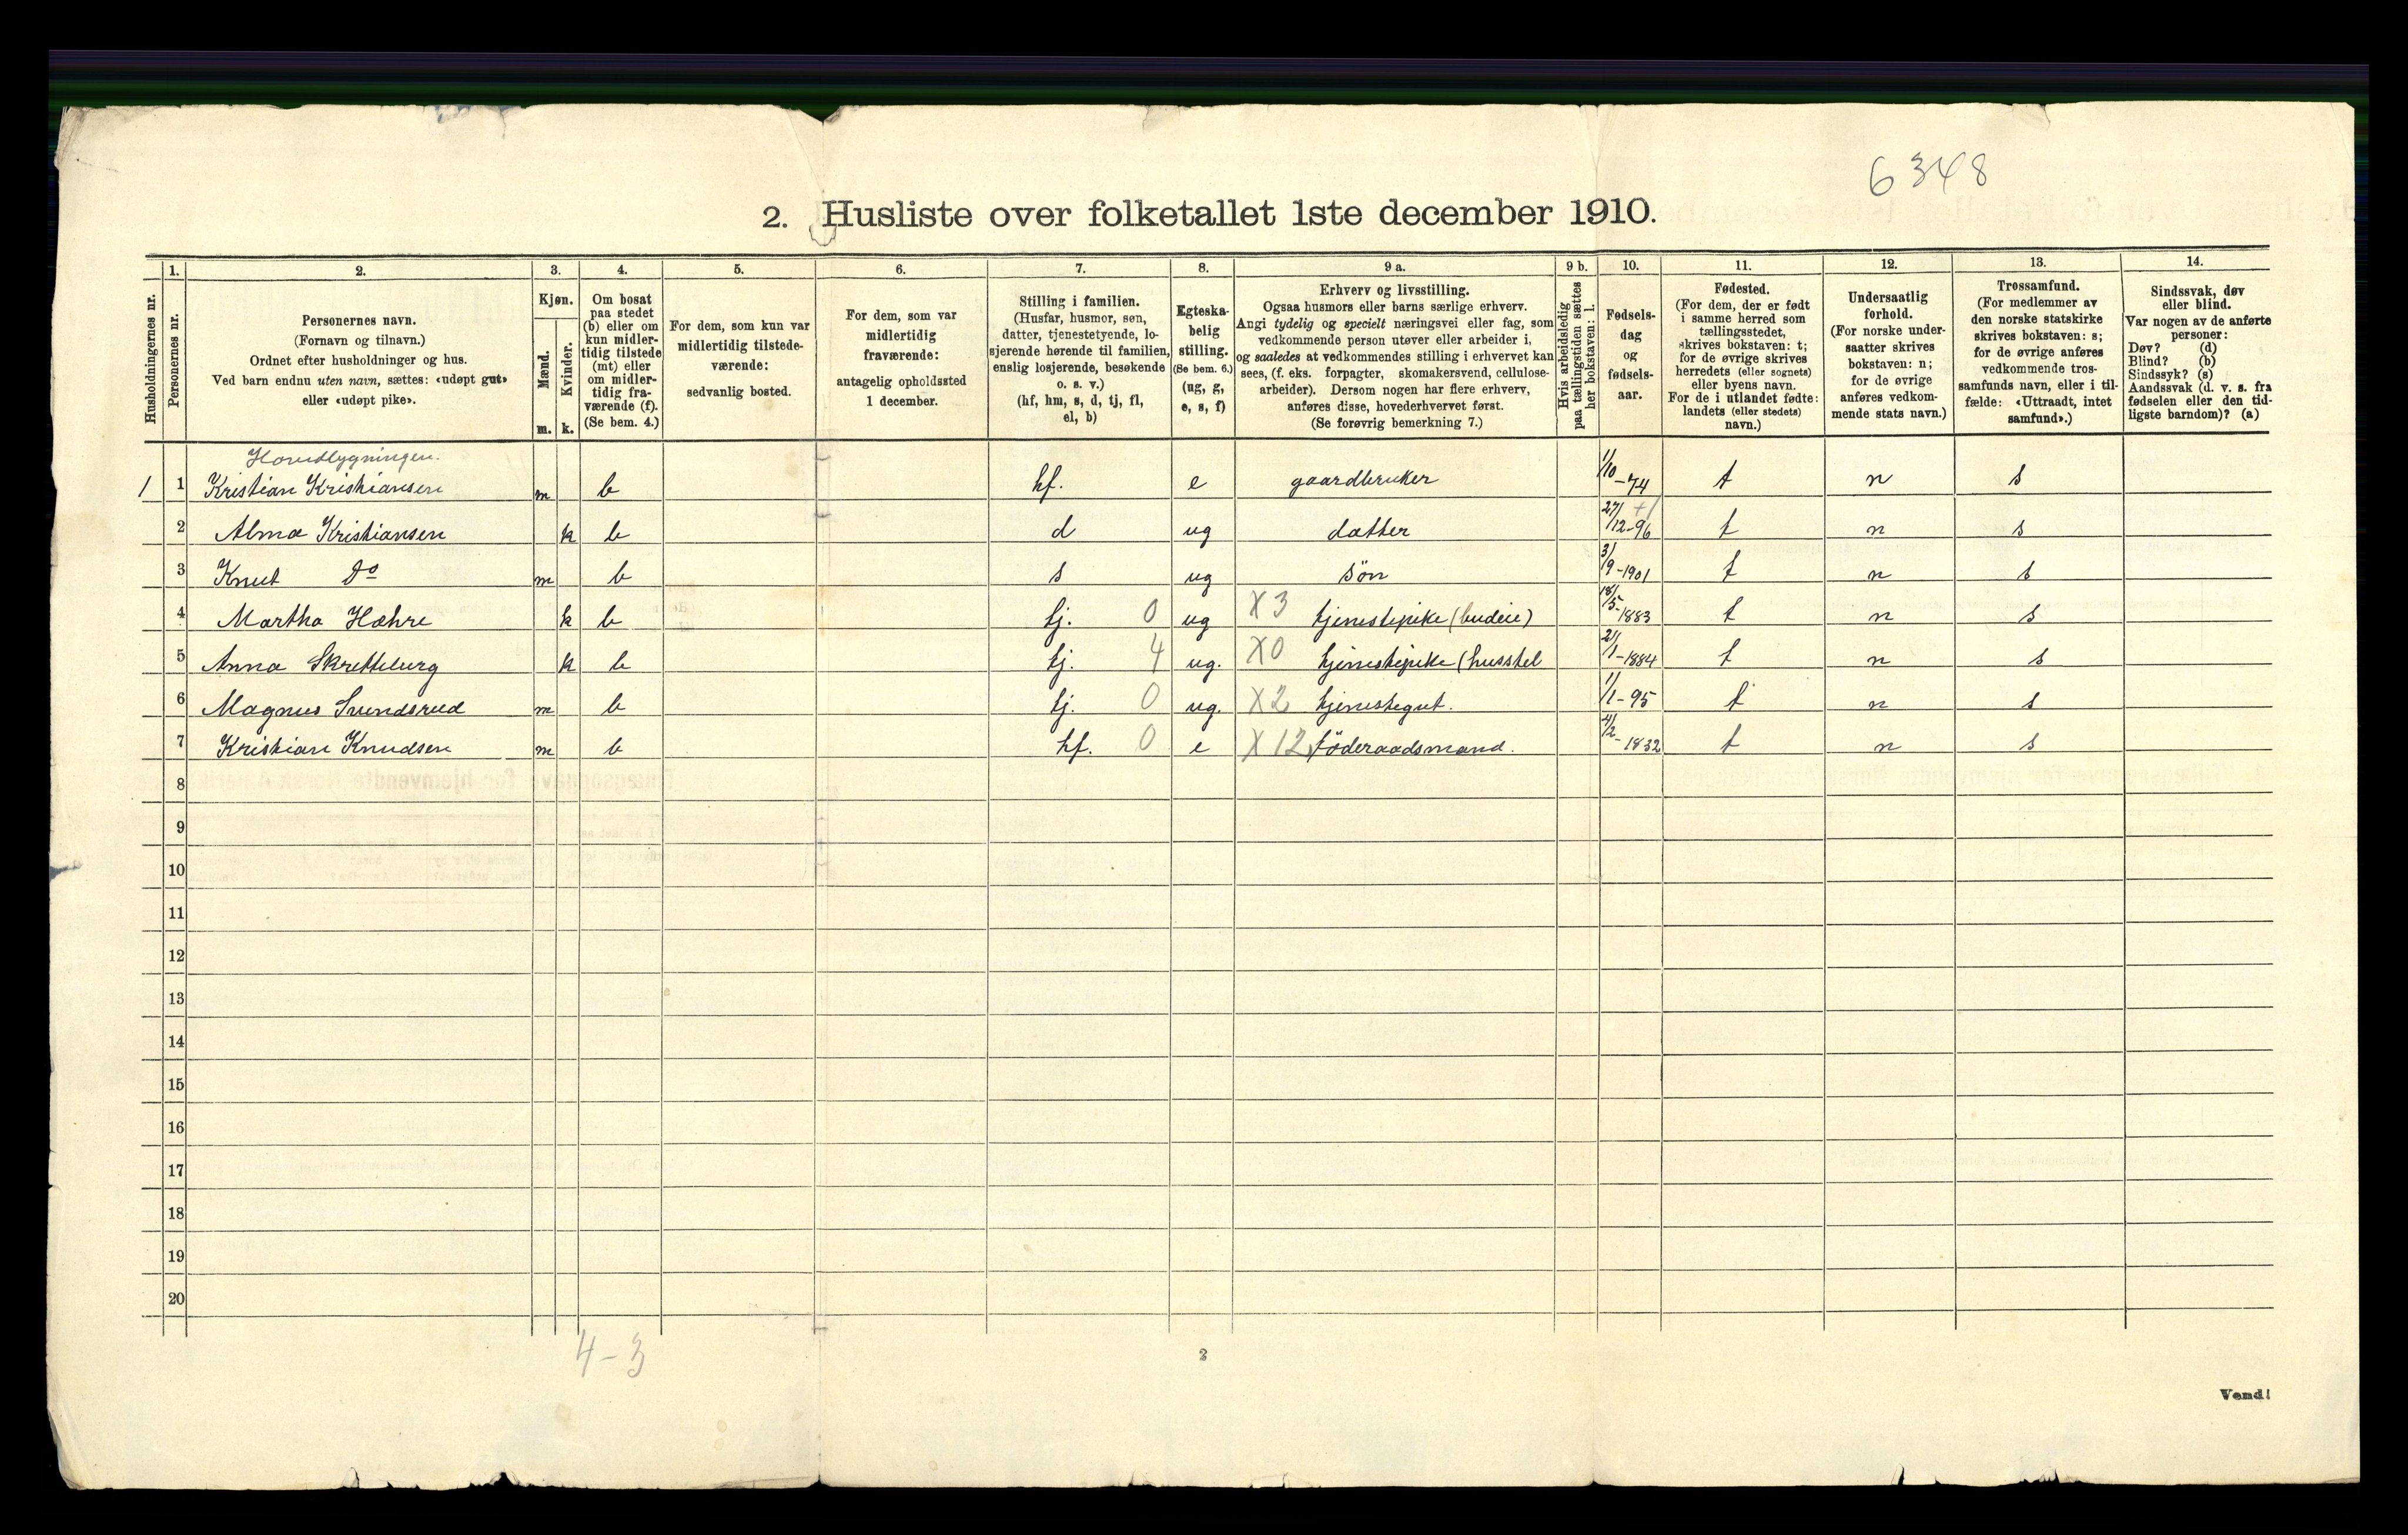 6348
2. Husliste over folketallet 1ste december 1910.
1. 2. 3. 4. 5. 6. 7. 8. 9 a. 9 b. 10. 11. 12. 13. 14.
Husholdningernes nr.
Personernes nr.
Personernes navn.
(Fornavn og tilnavn.)
Ordnet efter husholdninger og hus.
Ved barn endnu uten navn, sættes: «udøpt gut»
eller «udøpt pike».
Kjøn.
Mænd.
Kvinder.
m. k.
Om bosat
paa stedet
(b) eller om
kun midler-
tidig tilstede
(mt) eller
om midler-
tidig fra-
værende (f).
(Se bem. 4.)
For dem, som kun var
midlertidig tilstede-
værende:
sedvanlig bosted.
For dem, som var
midlertidig
fraværende:
antagelig opholdssted
1 december.
Stilling i familien.
(Husfar, husmor, søn,
datter, tjenestetyende, lo-
sjerende hørende til familien,
enslig losjerende, besøkende
o. s. v.)
(hf, hm, s, d, tj, fl,
el, b)
Egteska-
belig
stilling.
(Se bem. 6.)
(ug, g,
e, s, f)
Erhverv og livsstilling.
Ogsaa husmors eller barns særlige erhverv.
Angi tydelig og specielt næringsvei eller fag, som
vedkommende person utøver eller arbeider i,
og saaledes at vedkommendes stilling i erhvervet kan
sees, (f. eks. forpagter, skomakersvend, cellulose-
arbeider). Dersom nogen har flere erhverv,
anføres disse, hovederhvervet først.
(Se forøvrig bemerkning 7.)
Hvis arbeidsledig
paa tællingstiden sættes
her bokstaven: l.
Fødsels-
dag
og
fødsels-
aar.
Fødested.
(For dem, der er født
i samme herred som
tællingsstedet,
skrives bokstaven: t;
for de øvrige skrives
herredets (eller sognets)
eller byens navn.
For de i utlandet fødte:
landets (eller stedets)
navn.)
Undersaatlig
forhold.
(For norske under-
saatter skrives
bokstaven: n;
for de øvrige
anføres vedkom-
mende stats navn.)
Trossamfund.
(For medlemmer av
den norske statskirke
skrives bokstaven: s;
for de øvrige anføres
vedkommende tros-
samfunds navn, eller i til-
fælde: «Uttraadt, intet
samfund».)
Sindssvak, døv
eller blind.
Var nogen av de anførte
personer:
Døv? (d)
Blind? (b)
Sindssyk? (s)
Aandssvak (d. v. s. fra
fødselen eller den tid-
ligste barndom)? (a)
Hovedbygningen.
1 1 Kristian Kristiansen m b hf. e gaardbruker 1/10-74 t n s
2 Alma Kristiansen k b d ug datter 27/12-96 t n s
3 Knut Do m b s ug søn 3/9-1901 t n s
4 Martha Hæhre k b tj. 0 ug X3 tjenestepike (budeie) 18/5-1883 t n s
5 Anna Skretteberg k b tj. 4 ug. X0 tjenestepike (husstel 21/1-1884 t n s
6 Magnus Svendsrud m b tj. 0 ug. X2 tjenestegut. 1/1-95 t n s
7 Kristian Knudsen m b hf. 0 e X12 føderaadsmand. 4/2-1832 t n s
8
9
10
11
12
13
14
15
16
17
18
19
20
4-3
2
Vend!